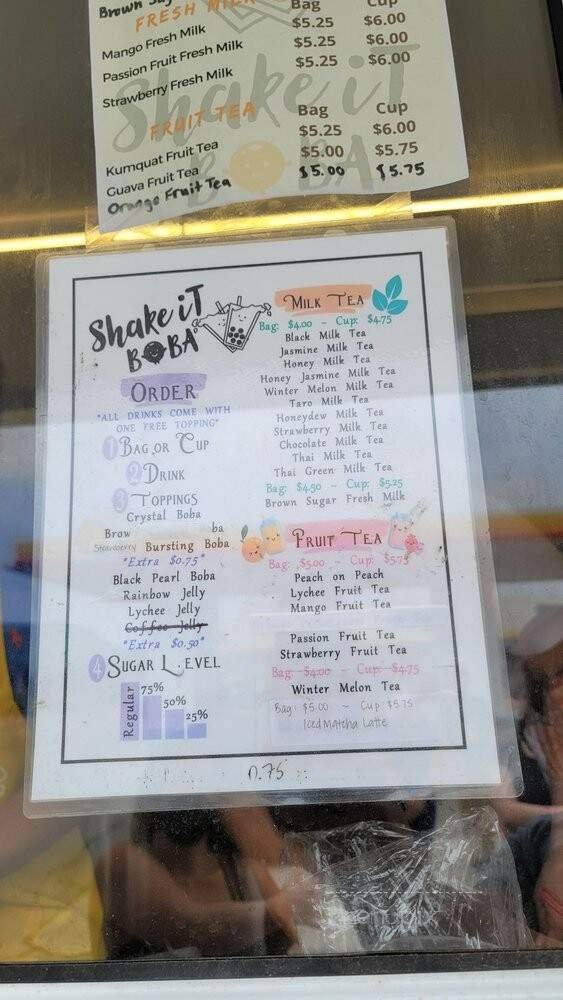 Brown
FRESH MILK
Bag Cup
$5.25 $6.00
Mango Fresh Milk $5.25 $6.00
Passion Fruit Fresh Milk $5.25 $6.00
Strawberry Fresh Milk
Shake iT
BOBA
FRUIT TEA Bag Cup
$5.25 $6.00
Kumquat Fruit Tea $5.00 $5.75
Guava Fruit Tea $5.00 $5.75
Orange Fruit Tea
Shake iT
BOBA
ORDER
*ALL DRINKS COME WITH
ONE FREE TOPPING*
1 BAG OR CUP
2 DRINK
3 TOPPINGS
Crystal Boba
Brow ba
Strawberry Bursting Boba
*Extra $0.75*
Black Pearl Boba
Rainbow Jelly
Lychee Jelly
Coffee Jelly
*Extra $0.50*
4 SUGAR L.EVEL
Regular
75%
50%
25%
MILK TEA
Bag: $4.00 - Cup: $4.75
Black Milk Tea
Jasmine Milk Tea
Honey Milk Tea
Honey Jasmine Milk Tea
Winter Melon Milk Tea
Taro Milk Tea
Honeydew Milk Tea
Strawberry Milk Tea
Chocolate Milk Tea
Thai Milk Tea
Thai Green Milk Tea
Bag: $4.50 - Cup: $5.25
Brown Sugar Fresh Milk
FRUIT TEA
Bag: $5.00 - Cup: $5.75
Peach on Peach
Lychee Fruit Tea
Mango Fruit Tea
Passion Fruit Tea
Strawberry Fruit Tea
Bag: $4.00 - Cup: $4.75
Winter Melon Tea
Bag: $5.00 - Cup: $5.75
Iced Matcha Latte
0.75